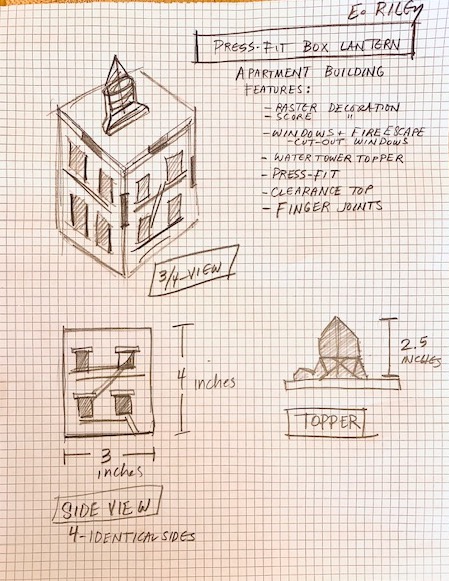 E. RILEY
PRESS-FIT BOX LANTERN
APARTMENT BUILDING
FEATURES:
- RASTER DECORATION
- SCORE "
- WINDOWS + FIRE ESCAPE
- CUT-OUT WINDOWS
- WATER TOWER TOPPER
- PRESS-FIT
- CLEARANCE TOP
- FINGER JOINTS
3/4-VIEW
4 inches
3 inches
SIDE VIEW
4-IDENTICAL SIDES
2.5 INCHES
TOPPER